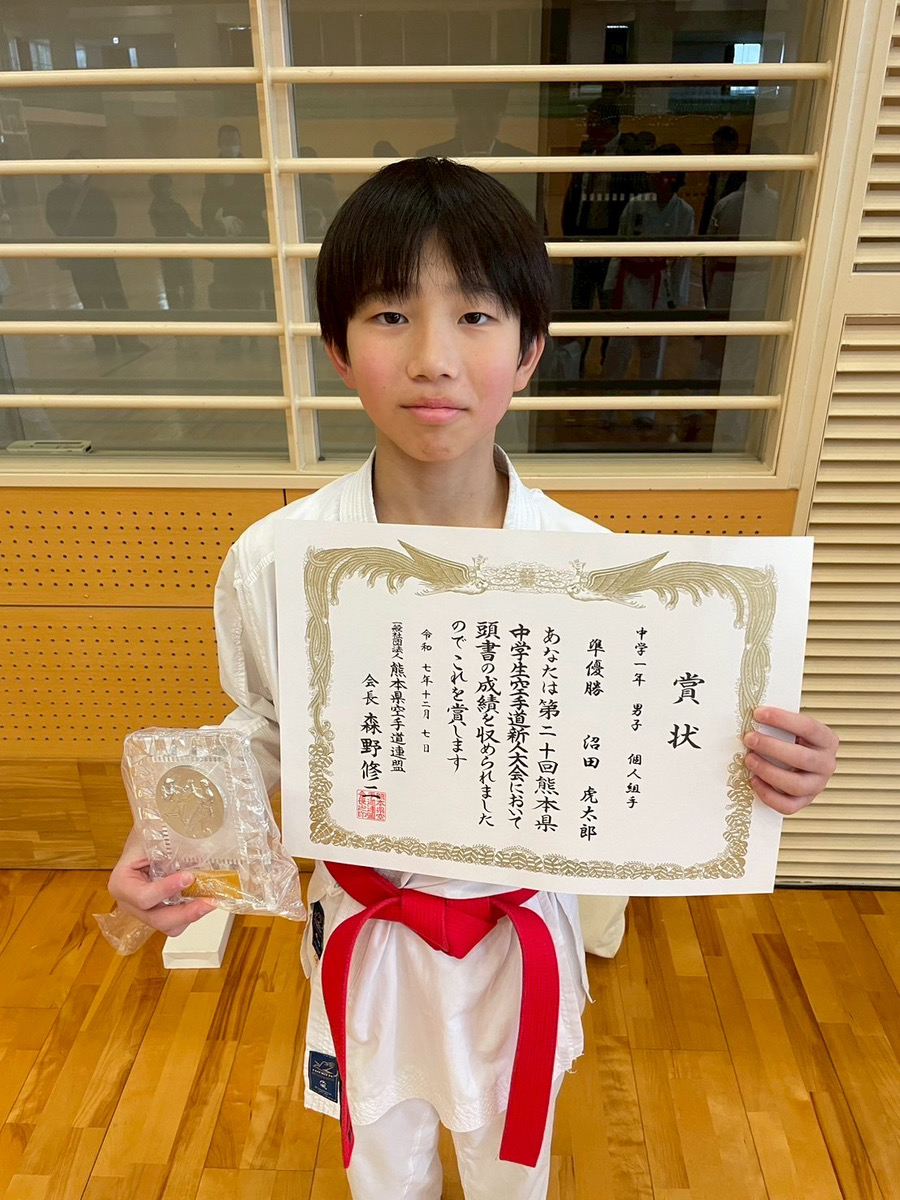 賞状
中学一年 男子 個人組手
準優勝 沼田 虎太郎
あなたは第二十回熊本県
中学生空手道新人大会において
頭書の成績を収められました
のでこれを賞します
令和七年十二月七日
一般社団法人 熊本県空手道連盟
会長 森野修二